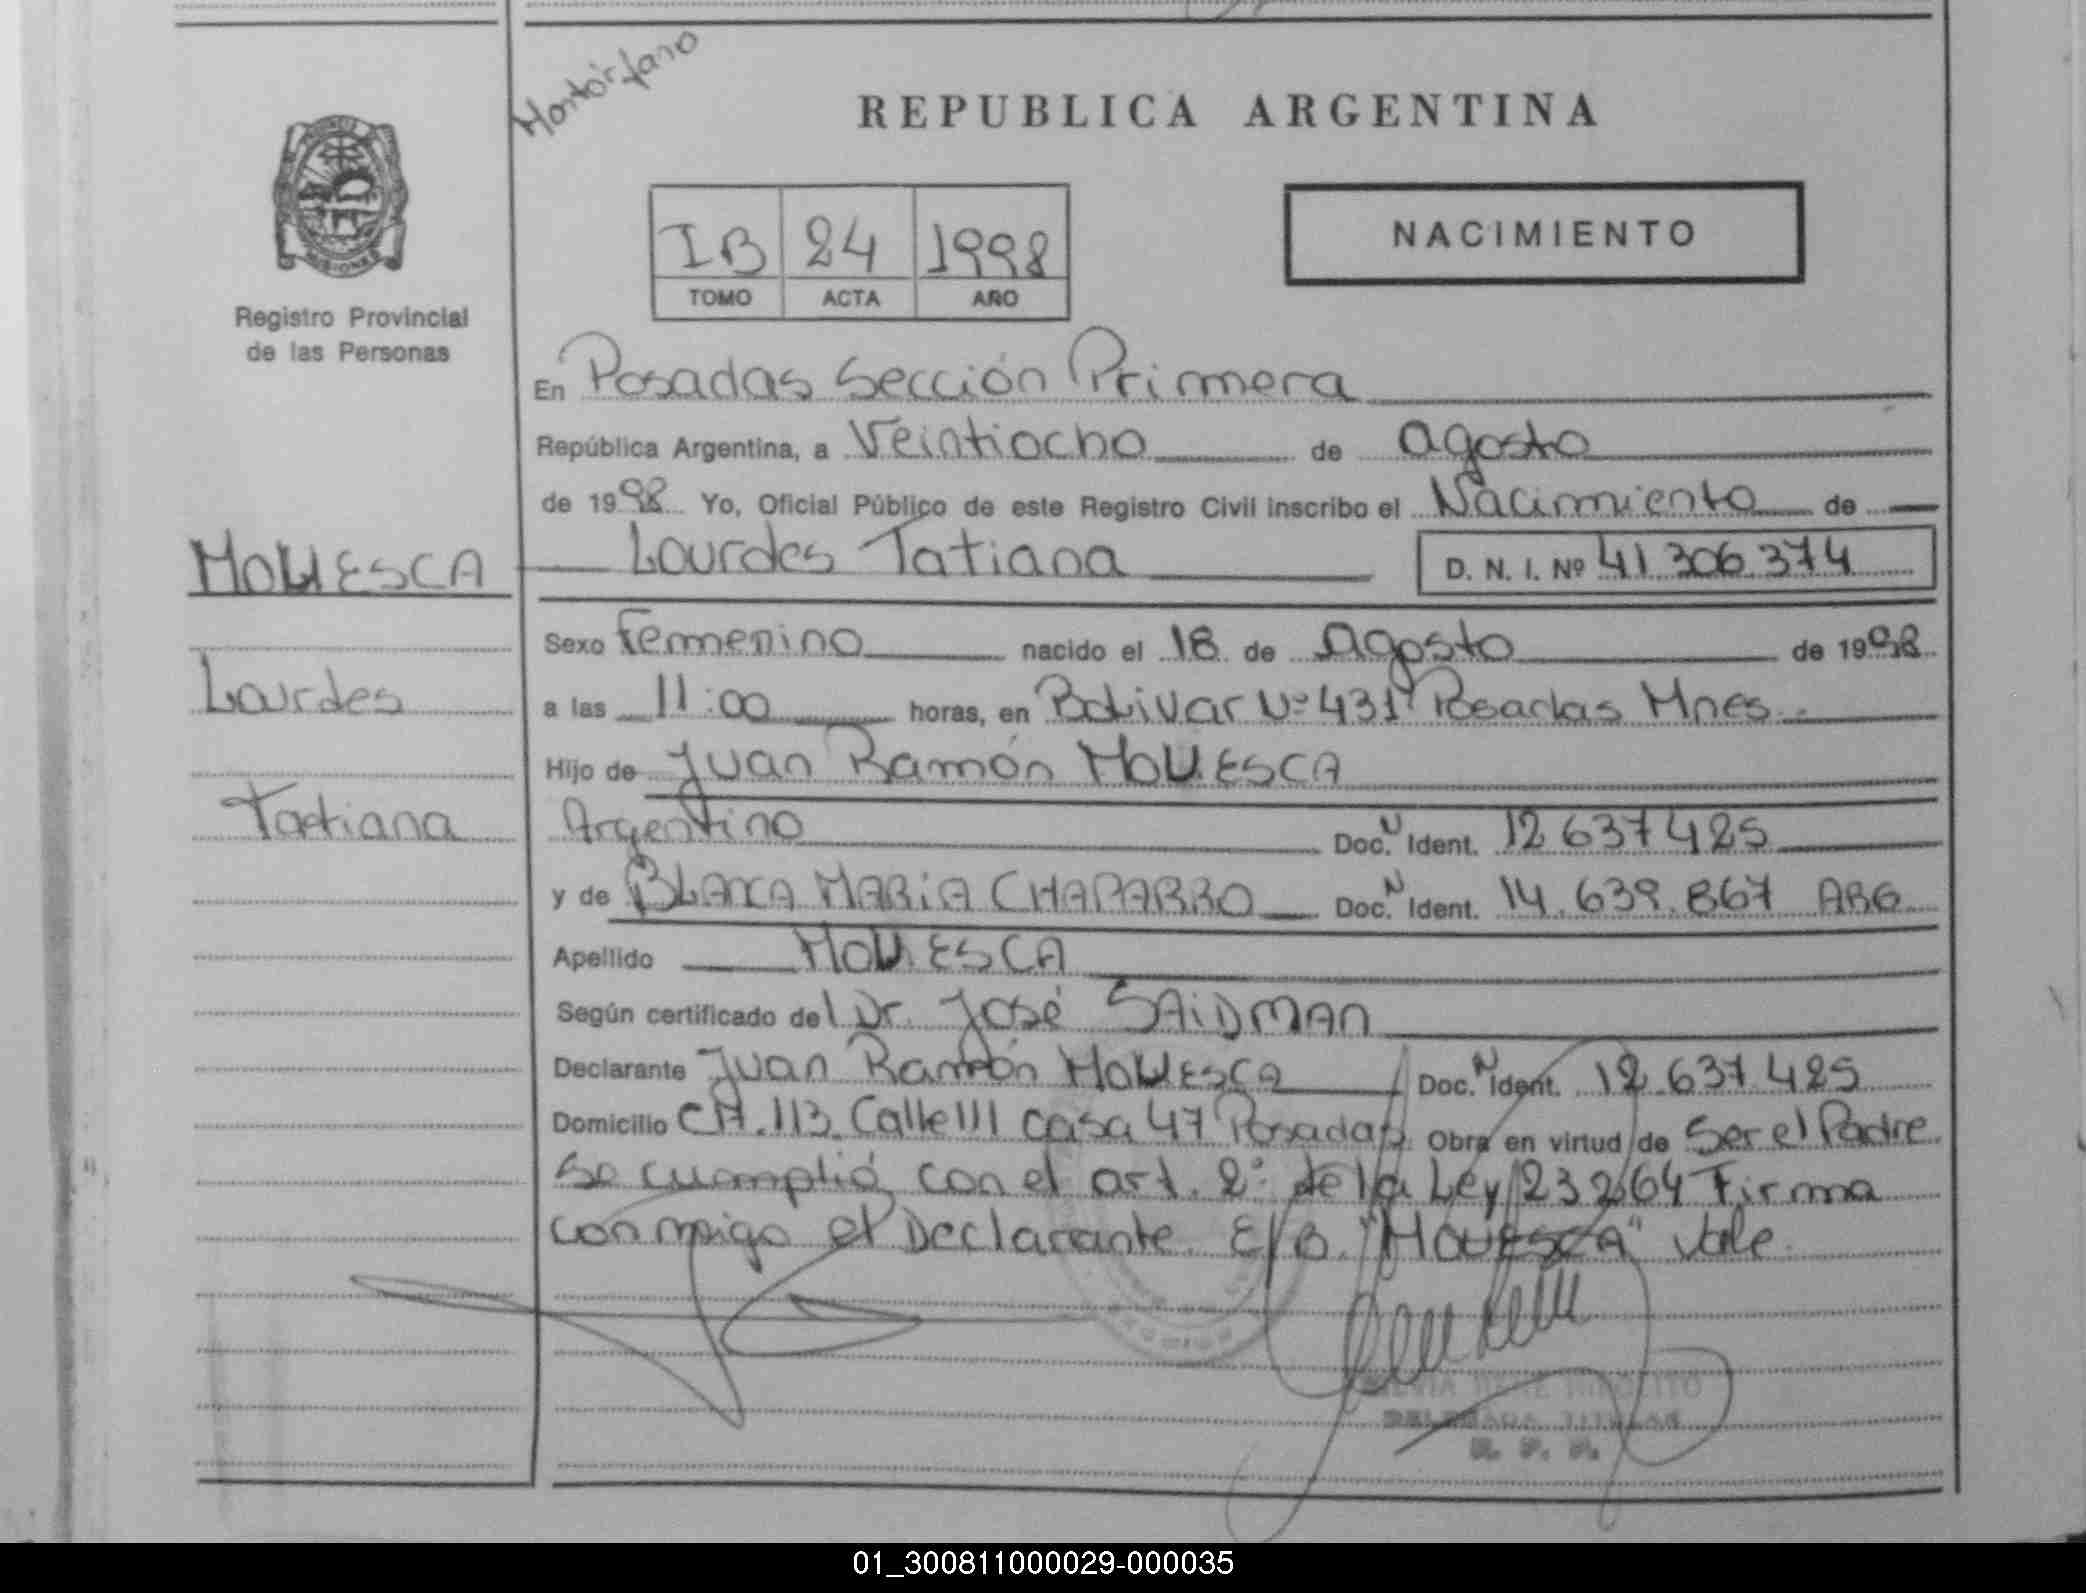 Montórfano
REPUBLICA ARGENTINA
NACIMIENTO
IB 24 1998
TOMO ACTA AÑO
Registro Provincial
de las Personas
En Posadas Sección Primera
República Argentina, a Veintiocho de agosto
de 1998 Yo, Oficial Público de este Registro Civil inscribo el Nacimiento de
Lourdes Tatiana D. N. I. Nº 41 306 374
MOUESCA
Lourdes
Tatiana
Sexo Femenino nacido el 18 de Agosto de 1998
a las 11:00 horas, en Bolivar Nº 431 Posadas Mnes.
Hijo de Juan Ramón MOUESCA
Argentino Doc. N Ident. 12 637 425
y de BLANCA MARIA CHAPARRO Doc. N Ident. 14.639.867 ARG
Apellido MOUESCA
Según certificado del Dr. José SAIDMAN
Declarante Juan Ramón MOUESCA Doc. N Ident. 12 637 425
Domicilio CH. 113 Calle 111 casa 47 Posadas Obra en virtud de Ser el Padre
Se cumplió con el art. 2º de la Ley 23264 Firma
conmigo el Declarante E/B. "MOUESCA" Vale
DELEGADA TITULAR
R. P. P.
01_300811000029-000035